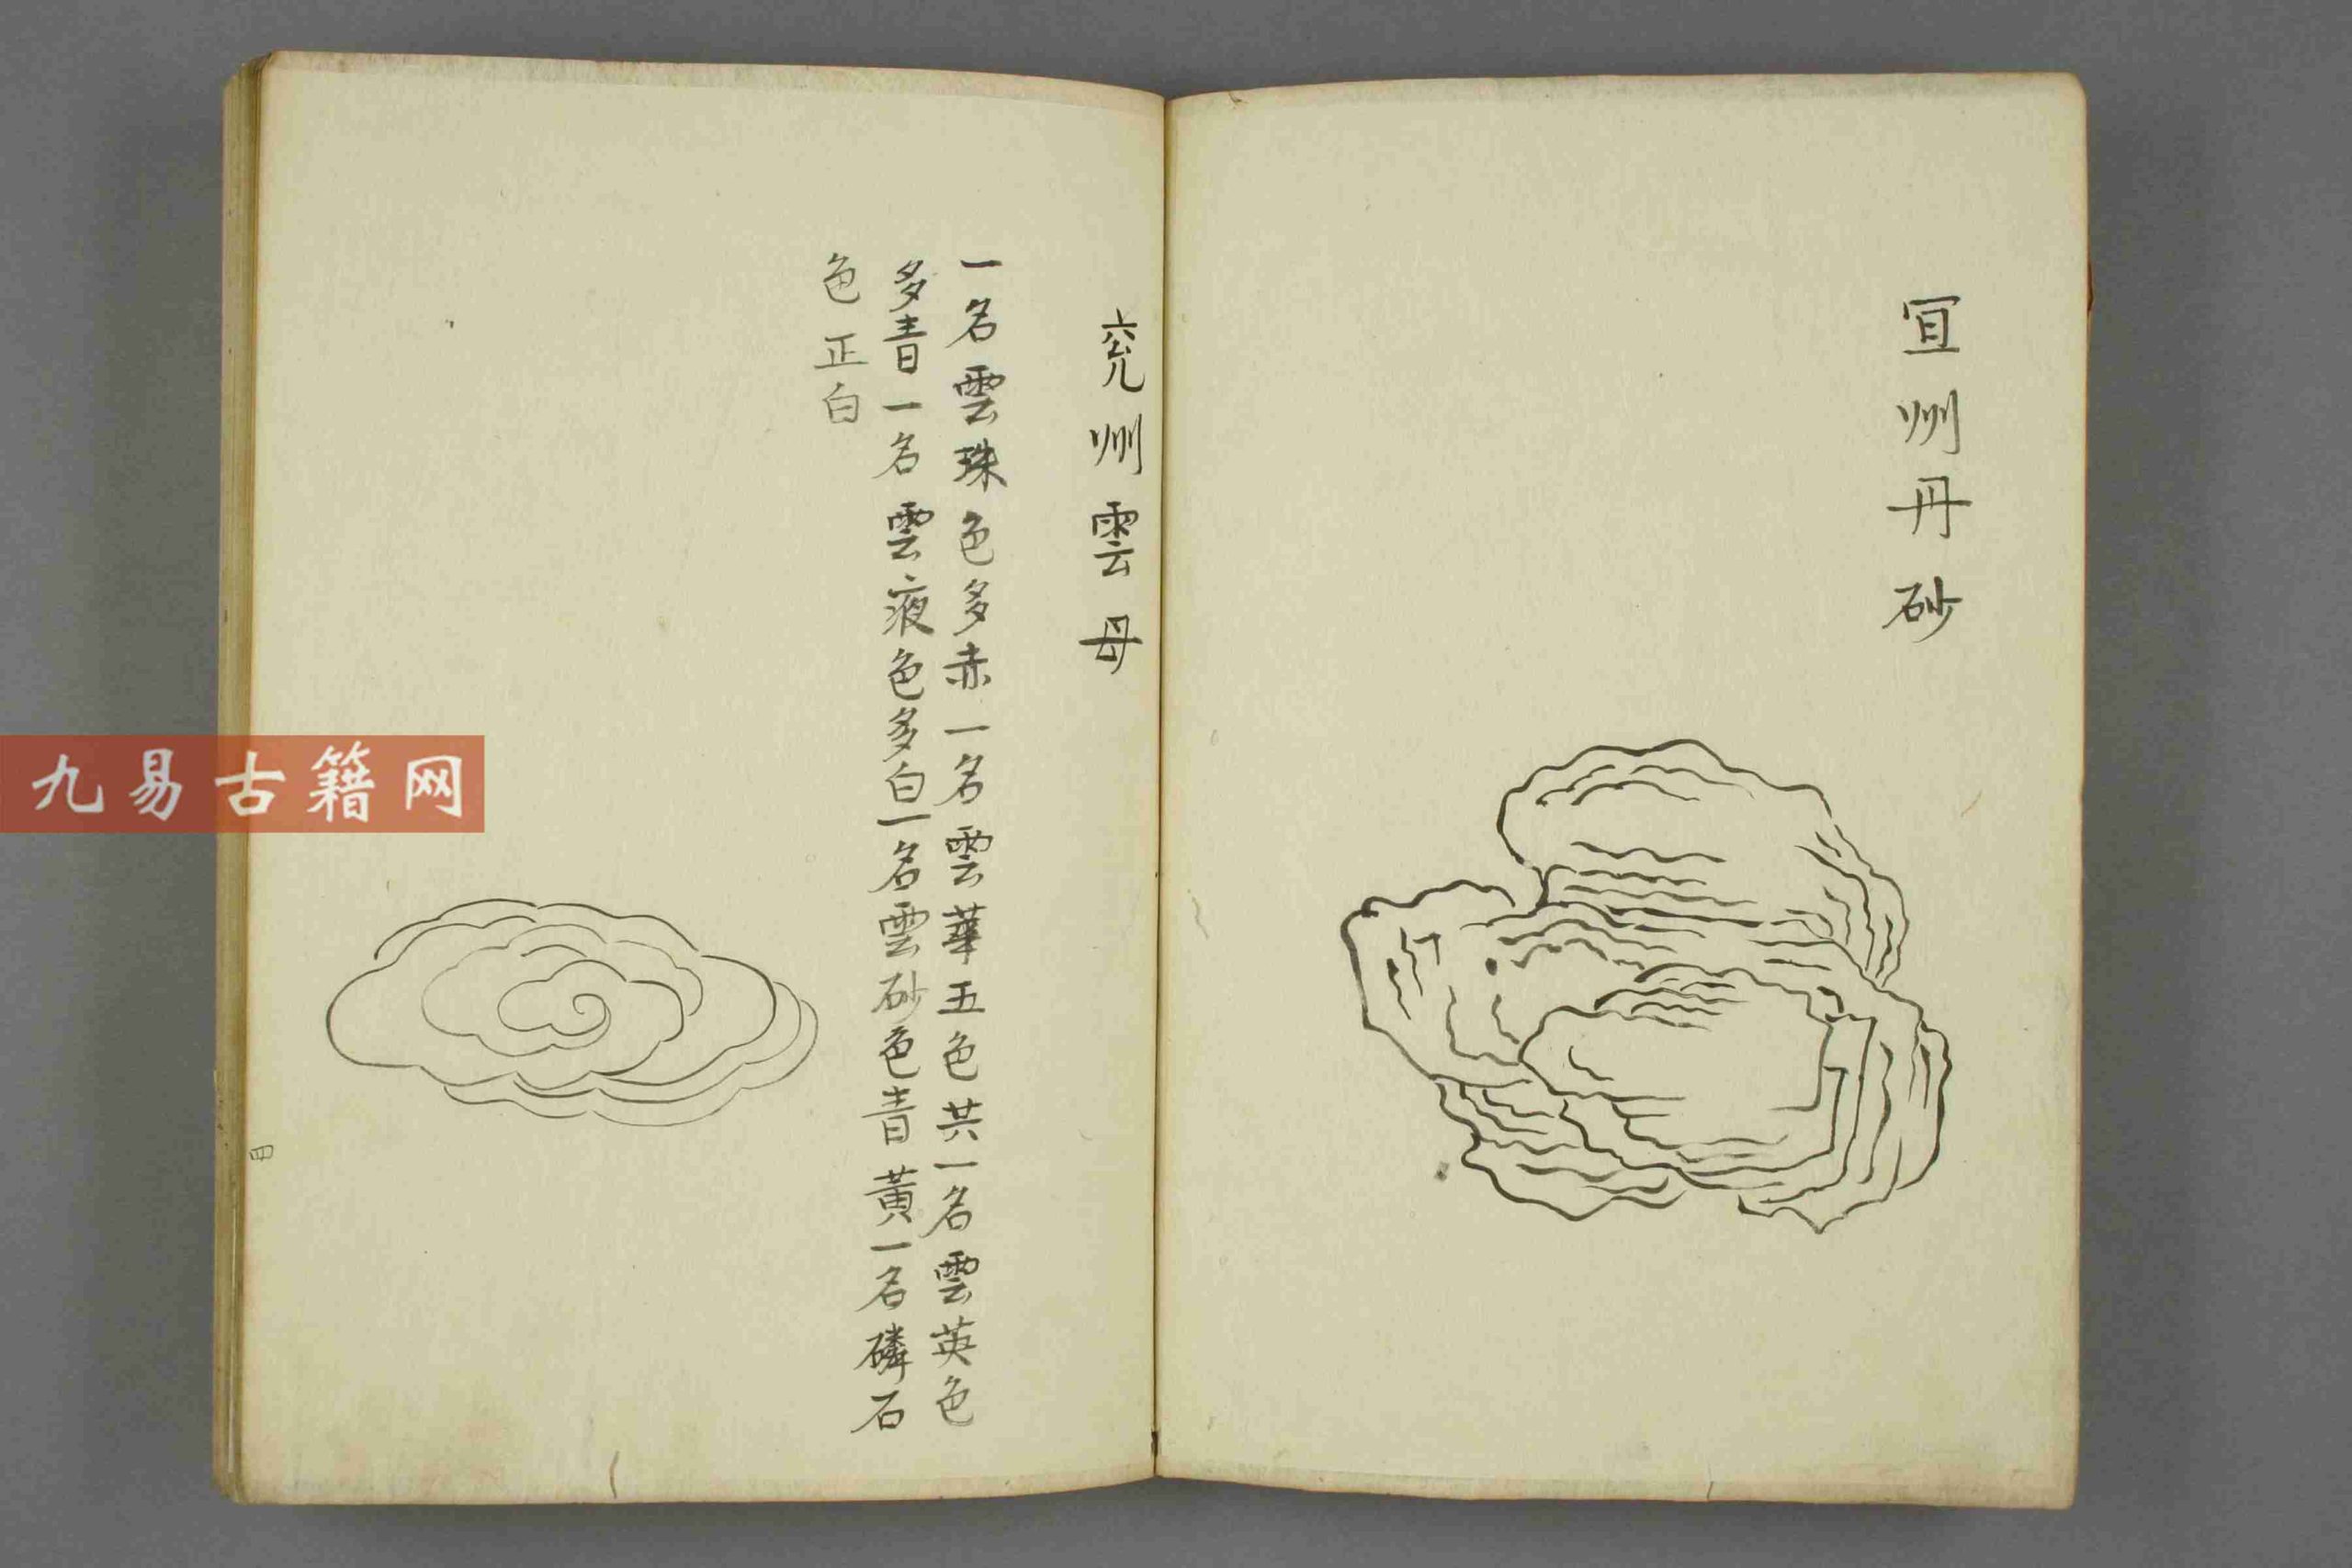 冝州丹砂
兖州雲母
一名雲珠色多赤一名雲華五色共一名雲英色
多青一名雲液色多白一名雲砂色青黃一名磷石
色正白
四
九易古籍网